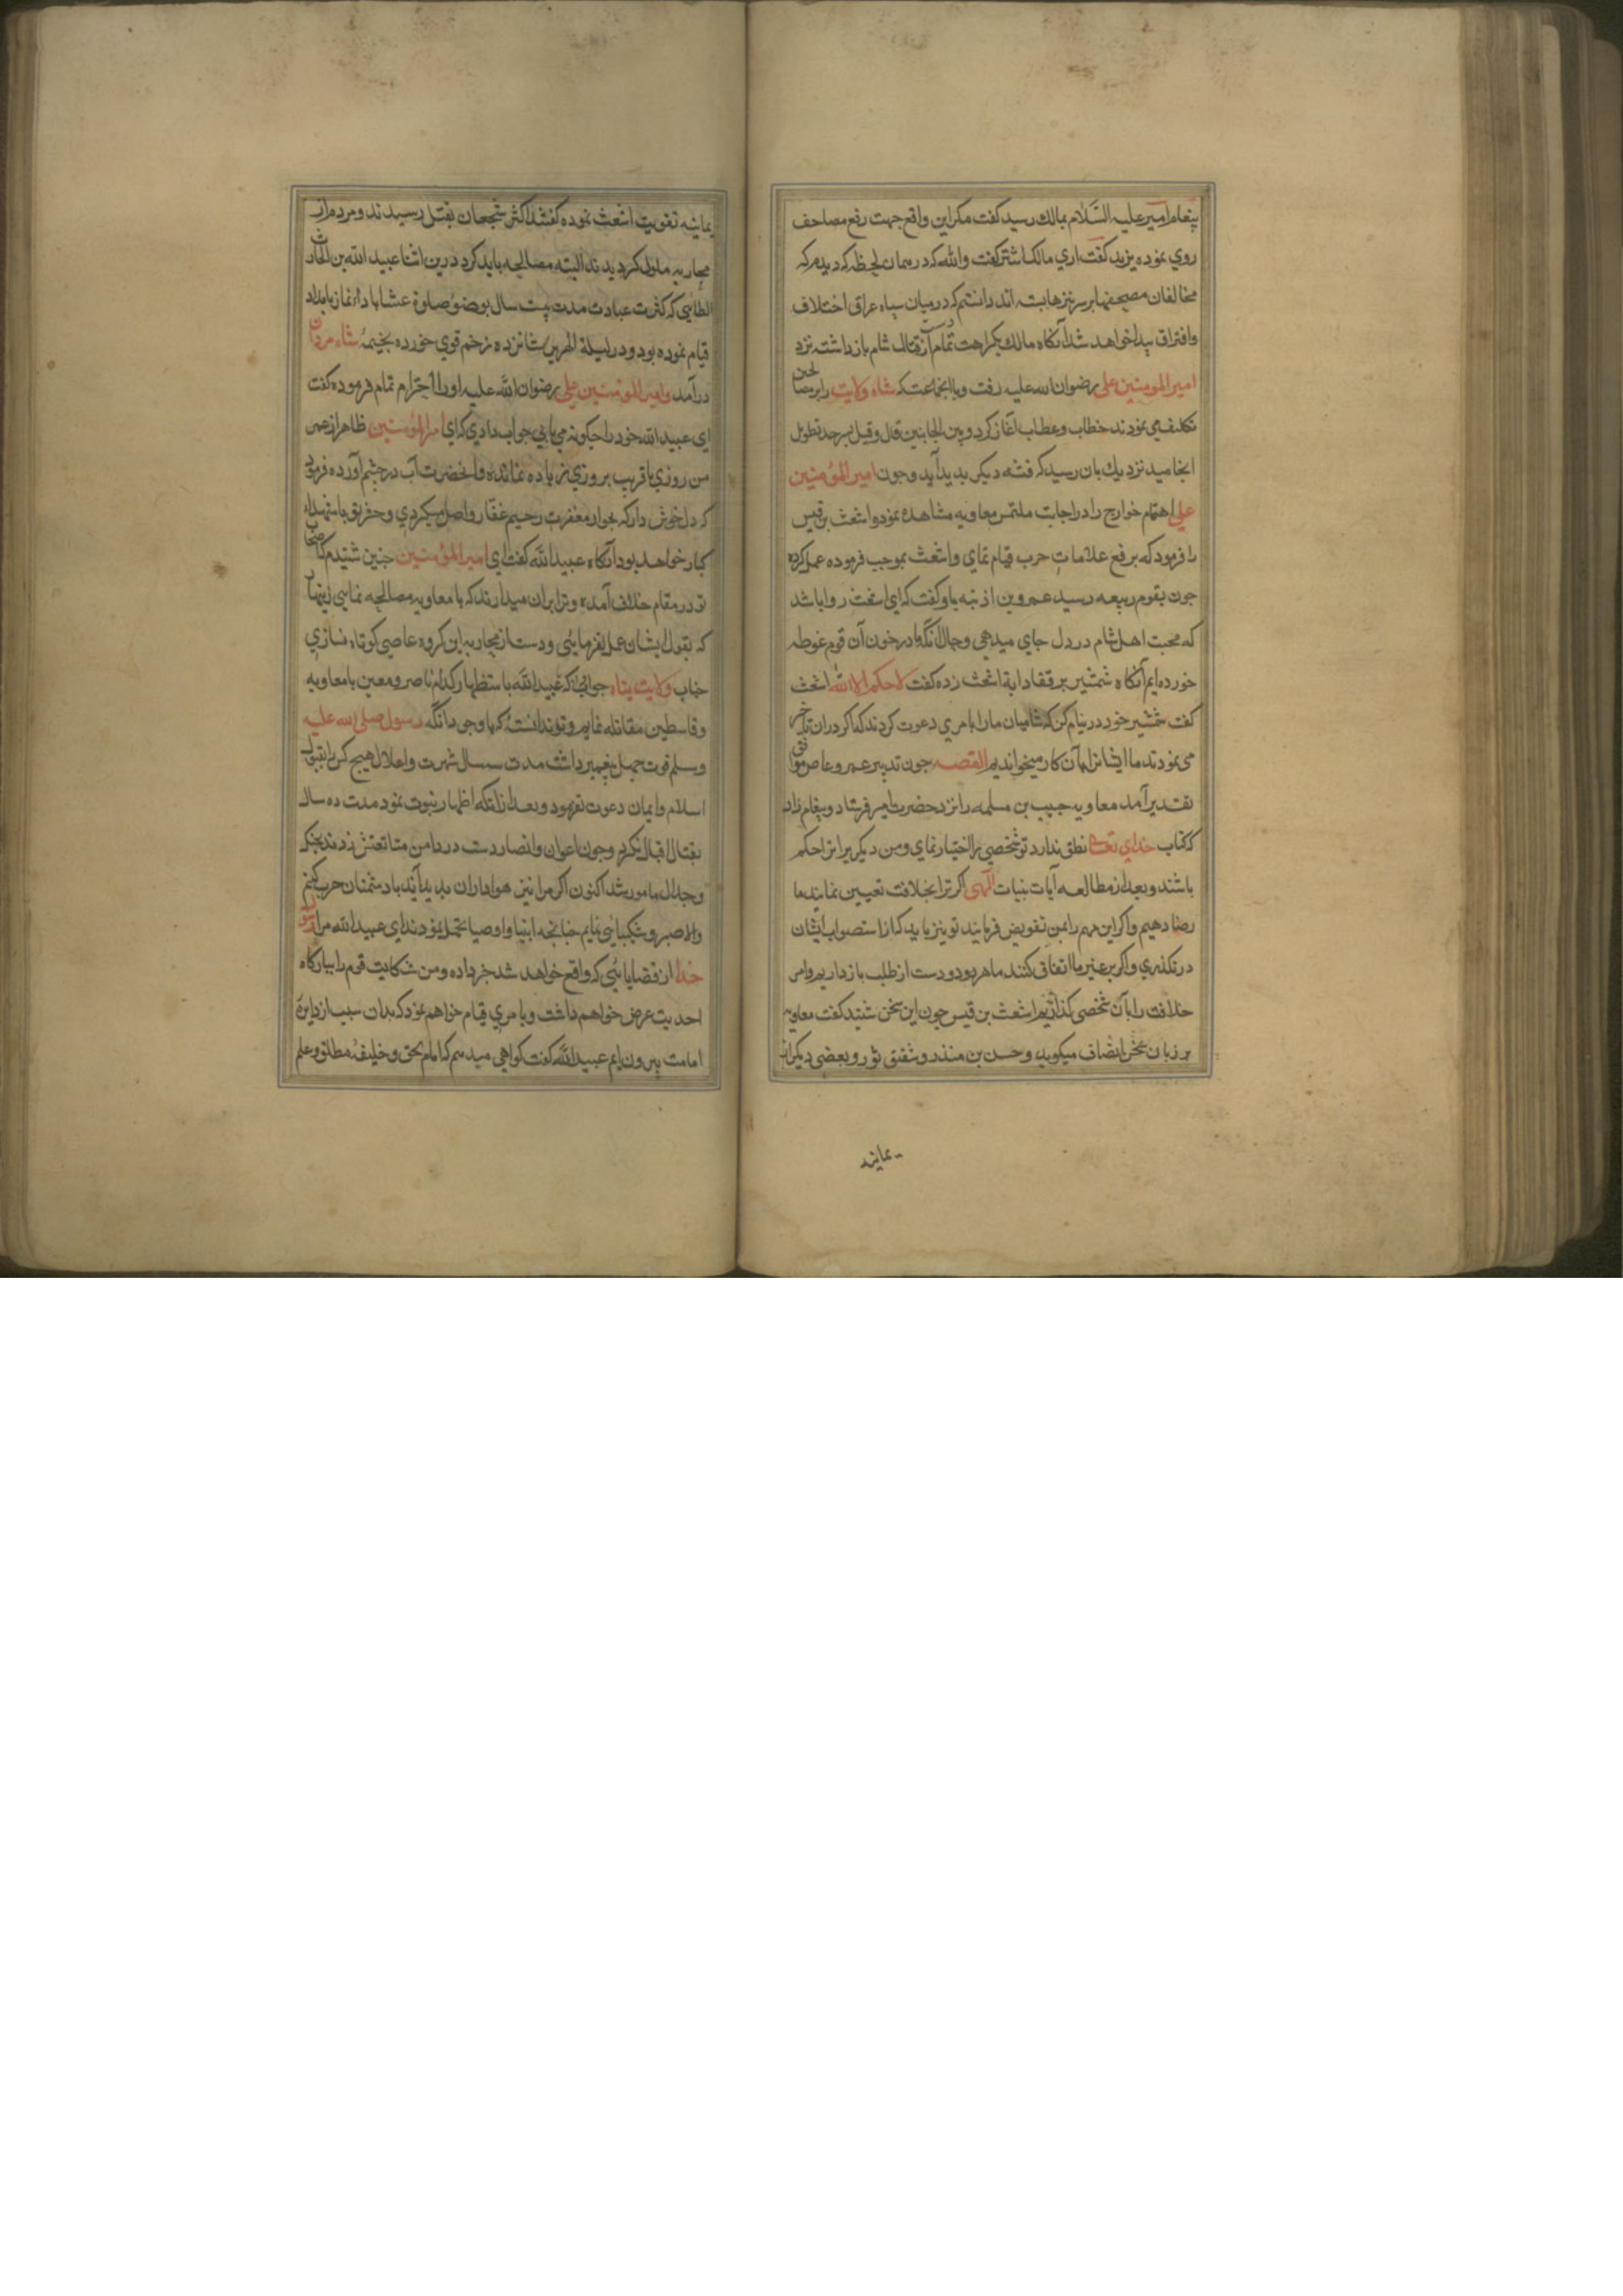 پیغام امیر علیه السّلام بمالک رسید گفت مکر این واقع جهت رفع مصاحف
روی نموده یزید گفت آری مالک اشتر گفت والله که در همان لحظه که دیدم که
مخالفان مصحفها بر سر نیزها بسته اند دانستم که درمیان سپاه عراق اختلاف
وافتراق پیدا خواهد شد آنکاه مالک بکراهت تمام دست از قتال شام باز داشته نزد
امیر المومنین علی رضوان الله علیه رفت وبا انجماعت که شاه ولایت را بر مصالحه
تکلیف می نمودند خطاب وعطاب آغاز کرد وبین الجانبین قال وقیل بسرحد تطویل
انجامید نزدیک بان رسید که فتنه دیکر پدید آید وجون امیر المؤمنین
علی اهتمام خوارج را در اجابت ملتمس معاویه مشاهده نمود واشعث بن قیس
را فرمود که برفع علامات حرب قیام نمای واشعث بموجب فرموده عمل کرده
جون بقوم ربیعه رسید عمرو بن اذینه باو کفت که ای اشعث روا باشد
که محبت اهل شام در دل جای میدهی وحال آنکه ما در خون آن قوم غوطه
خورده ایم آنکاه شمشیر بر قفا دابة اشعث زده کفت لا حکم الا الله اشعث
کفت شمشیر خود در نیام کن که شامیان ما را بامری دعوت کردند که اکر در ان تاخیر
می نمودند ما ایشانرا بآن کار میخواندیم القصه جون تدبیر عمرو عاص موافق
تقدیر آمد معاویه حبیب بن مسلمه را نزد حضرت امیر فرستاد وپیغام داد
که کتاب خدای تعالی نطق ندارد تو شخصی را اختیار نمای ومن دیکریرا تا حکم
باشند وبعد از مطالعه آیات بینات الهی اکر ترا بخلافت تعیین نمایند ما
رضا دهیم واکر این مهم را بمن تفویض فرمایند تو نیز باید که از استصواب ایشان
در نکذری واکر بر غیر ما اتفاق کنند ما هر دو دست از طلب باز داریم وامر
خلافت را بآن شخصی کذاریم اشعث بن قیس جون این سخن شنید کفت معاویه
بر زبان سخن انصاف میکوید وحسن بن منذر وشقیق ثور وبعضی دیکر از
یمانیه
یمانیه تقویت اشعث نموده کفتند اکثر شجعان بقتل رسیدند ومردم از
محاربه ملول کردیدند البته مصالحه باید کرد درین اثنا عبید الله بن الحارث
الطائی که کثرت عبادت مدت بیست سال بوضوء صلوة عشا بادا نماز بامداد
قیام نموده بود ودر لیلة الهریر شانزده زخم قوی خورده بخیمهٔ شاه مردان
درآمد وامیر المؤمنین علی رضوان الله علیه اورا احترام تمام فرموده کفت
ای عبید الله خود را جکونه می یابی جواب دادی که ای امیر المؤمنین ظاهرا از عمر
من روزی یا قریب بروزی زیاده نمانده وانحضرت آب در جشم آورده فرمود
که دل خوش دار که بجوار مغفرت رحیم غفار واصل میکردی وحفر تو با شهداء
کبار خواهد بود آنکاه عبید الله کفت ای امیر المؤمنین جنین شنیدم که اصحاب
تو در مقام خلاف آمده وترا بران میدارند که با معاویه مصالحه نمایی زینهار
که بقول ایشان عمل نفرمایئی ودست از محاربه این کروه عاصی کوتاه نسازی
جناب ولایت پناه جواب داد که عبید الله باستظهار کدام ناصر ومعین با معاویه
وقاسطین مقاتله نمایم وتو ندانسته که با وجود آنکه رسول صلی الله علیه
وسلم قوت جهل پیغمبر داشت مدت سه سال شهرت واعلان هیچ کس را بقبول
اسلام وایمان دعوت نفرمود وبعد از انکه اظهار نبوت نمود مدت ده سال
بقتال اقبال نکرد وجون اعوان وانصار دست در دامن متابعتش زدند بجنک
وجدال مامور شد اکنون اکر مرا نیز هواداران پدید آیند با دشمنان حرب کنم
والا صبر وشکیبائی نمایم جنانجه انبیا واوصیا تحمل نمودند ای عبید الله مرا رسول
خدا از قضایائی که واقع خواهد شد خبر داده ومن شکایت قوم را ببارکاه
احدیت عرض خواهم داشت وبامری قیام خواهم نمود که بدان سبب از دایرهٔ
امامت بیرون نیایم عبید الله کفت کواهی میدهم که امام بحق وخلیفهٔ مطلق وعلم